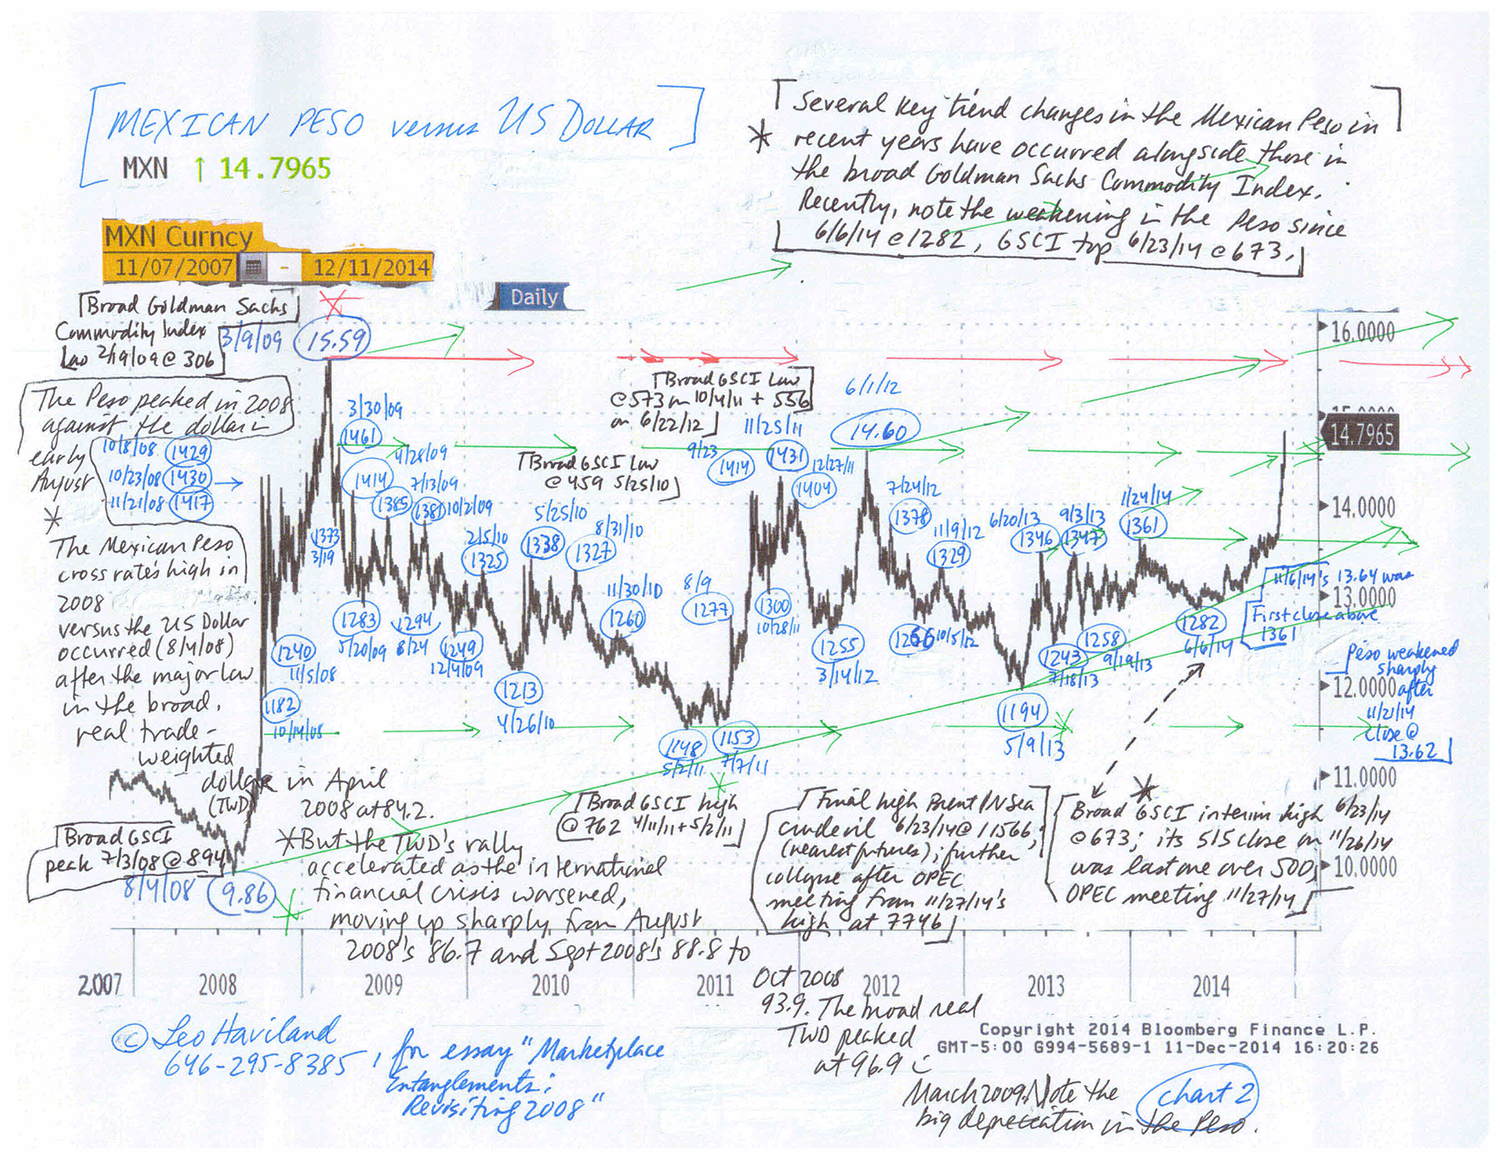 MEXICAN PESO versus US DOLLAR
MXN ↑ 14.7965
Several key trend changes in the Mexican Peso in
* recent years have occurred alongside those in
the broad Goldman Sachs Commodity Index.
Recently, note the weakening in the Peso since
6/6/14 @ 1282, GSCI top 6/23/14 @ 673.
MXN Curncy
11/07/2007 - 12/11/2014
Daily
Broad Goldman Sachs
Commodity Index
Low 2/19/09 @ 306
3/9/09
15.59
16.0000
The Peso peaked in 2008
against the dollar in
early
August
10/8/08 1429
10/23/08 1430
11/21/08 1417
*
The Mexican Peso
cross rate's high in
2008
versus the US Dollar
occurred (8/4/08)
after the major low
in the broad,
real trade-
weighted
dollar in April
(TWD)
2008 at 84.2.
* But the TWD's rally
accelerated as the international
financial crisis worsened,
moving up sharply from August
2008's 86.7 and Sept 2008's 88.8 to
Oct 2008
93.9. The broad real
TWD peaked
at 96.9 in
March 2009. Note the
big depreciation in the Peso.
3/30/09
1461
1414
4/28/09
1385
7/13/09
1381
10/2/09
1373
3/19
2/5/10
1325
Broad GSCI Low
@ 459 5/25/10
5/25/10
1338
8/31/10
1327
11/30/10
1260
Broad GSCI Low
@ 573 on 10/4/11 + 556
on 6/22/12
9/23
1414
11/25/11
1431
12/27/11
1404
6/1/12
14.60
15.0000
14.7965
14.0000
7/24/12
1378
11/9/12
1329
6/20/13
1346
9/3/13
1347
1/24/14
1361
8/9
1277
1300
10/28/11
1255
3/14/12
1266
10/5/12
1240
11/5/08
1182
10/14/08
1283
5/20/09
1294
8/24
1249
12/4/09
1213
4/26/10
1148
5/2/11
1153
7/7/11
1194
5/9/13
1243
7/18/13
1258
9/19/13
1282
6/6/14
11/6/14's 13.64 was
First close above
1361
13.0000
Peso weakened
sharply
after
11/21/14
close @
13.62
12.0000
11.0000
10.0000
Broad GSCI
peak 7/3/08 @ 894
8/4/08
9.86
Broad GSCI high
@ 762 4/11/11 + 5/2/11
Final high Brent/N Sea
crude oil 6/23/14 @ 11566,
(nearest futures); further
collapse after OPEC
meeting from 11/27/14's
high at 7746
*
Broad GSCI interim high 6/23/14
@ 673; its 515 close on 11/26/14
was last one over 500,
OPEC meeting 11/27/14
2007 2008 2009 2010 2011 2012 2013 2014
© Leo Haviland
646-295-8385, for essay "Marketplace
Entanglements:
Revisiting 2008"
Copyright 2014 Bloomberg Finance L.P.
GMT-5:00 G994-5689-1 11-Dec-2014 16:20:26
chart 2